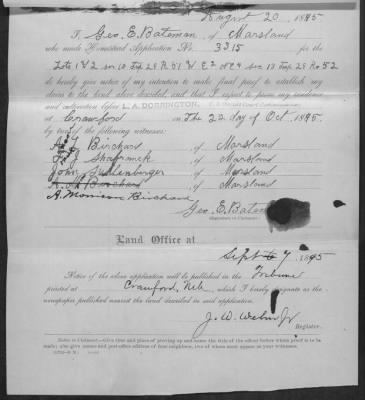 August 20, 1895
I, Geo. E. Bateman, of Marsland
who made Homestead Application No. 3315 for the
Lots 1 & 2 sec 10 Twp 28 R 51 & E2 NE4 sec 13 Twp 28 R 52
do hereby give notice of my intention to make final proof to establish my
claim to the land above described, and that I expect to prove my residence
and cultivation before L. A. DORRINGTON,
at Crawford on The 22 day of Oct 1895,
by two of the following witnesses:
A. J. Birchard, of Marsland
F. J. Shafranek, of Marsland
John, of Marsland
Birchard, of Marsland
A. Morrison Birchard
Geo. E. Batem
(Signature of Claimant)
Land Office at
Sept 7, 1895
Notice of the above application will be published in the Tribune
printed at Crawford, Neb, which I hereby designate as the
newspaper published nearest the land described in said application.
J. W. Wehn Jr
Register.
Notice to Claimant.—Give time and place of proving up and name the title of the officer before whom proof is to be
made; also give names and post-office address of four neighbors, two of whom must appear as your witnesses.